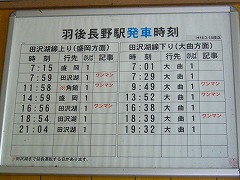 羽後長野駅発車時刻
田沢湖線上り(盛岡方面) 田沢湖線下り(大曲方面)
時刻 行先 のりば 記事 時刻 行先 のりば 記事
7:15 盛岡 1 7:01 大曲 1
7:59 田沢湖 1 7:29 大曲 1
11:58 角館 1 ワンマン 9:43 大曲 1 ワンマン
16:56 田沢湖 1 ワンマン 13:52 大曲 1 ワンマン
18:54 田沢湖 1 16:38 大曲 1
21:04 田沢湖 1 18:39 大曲 1 ワンマン
19:32 大曲 1